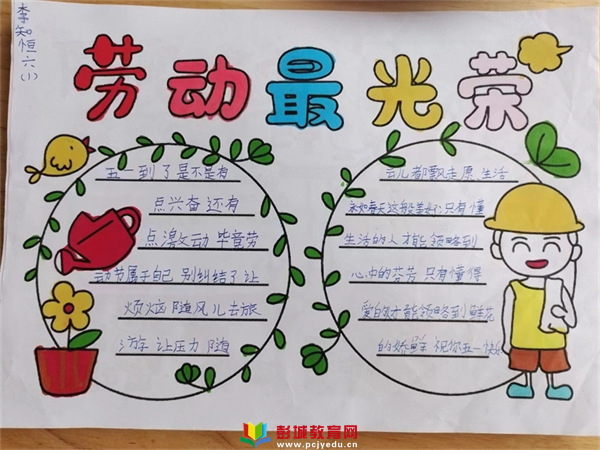 李知恒六(1)
劳动最光荣
五一到了是不是有
点兴奋还有
点激动 毕竟劳
动节属于自己 别纠结了让
烦恼随风儿去旅
游 让压力随
云儿都飘走愿生活
永如春天这般美好 只有懂
生活的人才能领略到
心中的芬芳 只有懂得
爱的人才能领略到鲜花
的娇鲜 祝你五一快乐
彭城教育网
www.pcjyedu.cn